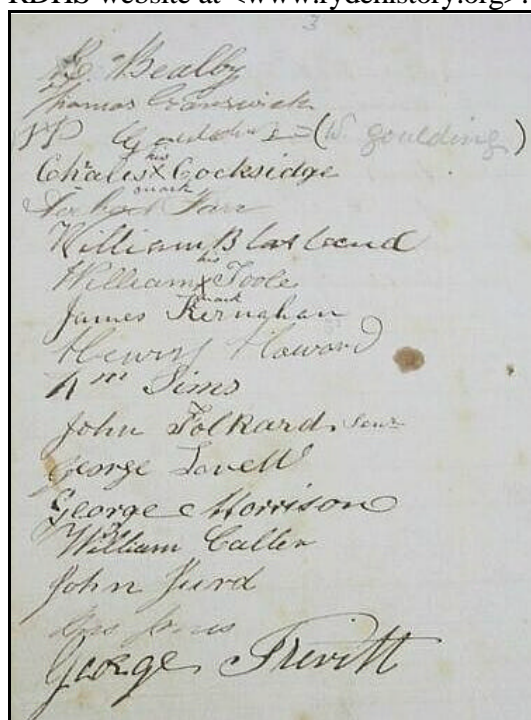 RDHS website at <www.rydehistory.org>.
3
Bealby
Thomas Cranswick
Goulding = (W. goulding)
his
Charles X Cocksidge
mark
Farr
William
his
William X Toole
mark
James Kernahan
Henry Howard
Wm Sims
John Folkard. Senr
George Lovell
George Morrison
William Caller
John Jurd
George Trevitt